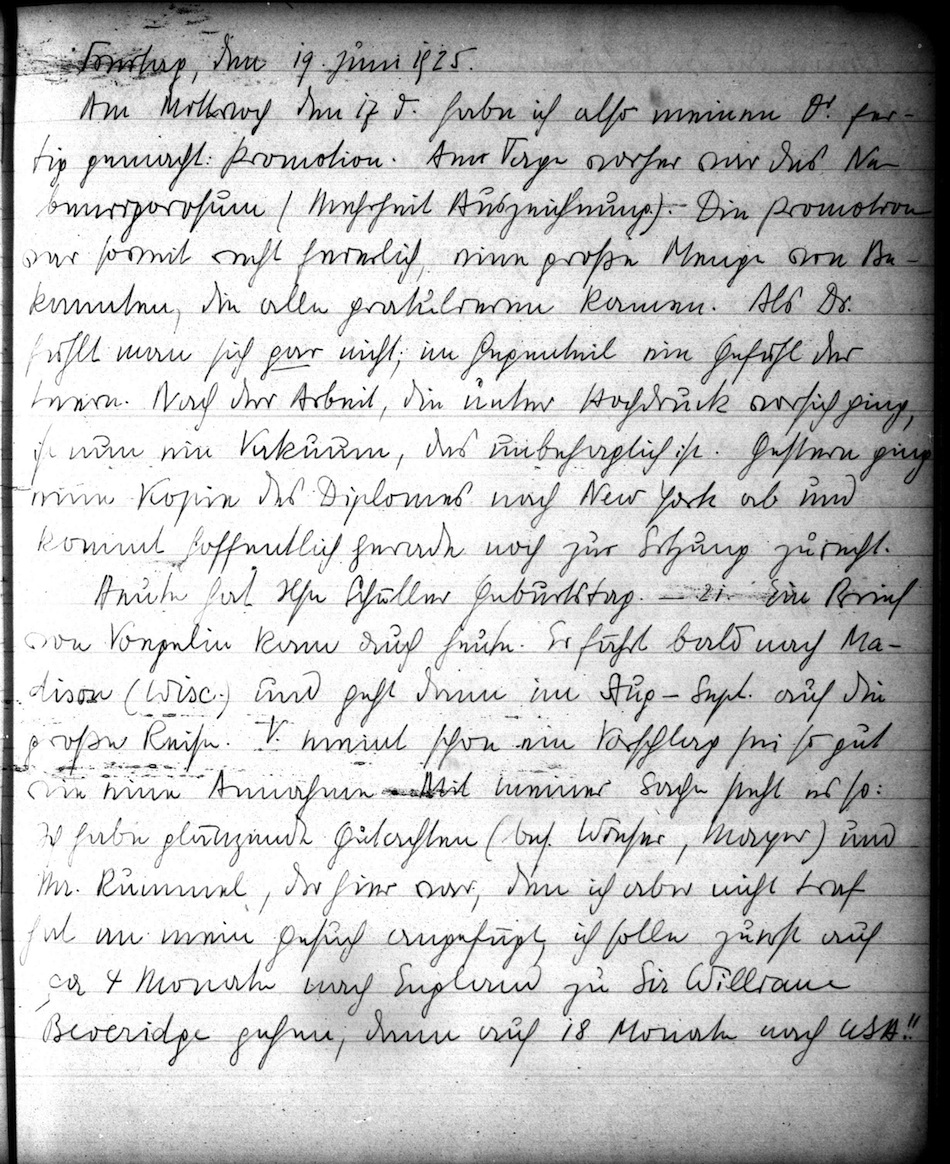 Freitag, den 19. Juni 1925.
Am Mittwoch den 17. d. habe ich also meinen Dr. fer-
tig gemacht: Promotion. Am Tage vorher war das Ne-
benrigorosum (Mehrheit Auszeichnung). – Die Promotion
war soweit recht feierlich, eine große Menge von Be-
kannten, die alle gratulieren kamen. Als Dr.
fühlt man sich gar nicht; im Gegenteil ein Gefühl der
Leere. Nach der Arbeit, die unter Hochdruck vorsichging,
ist nun ein Vakuum, das unbehaglich ist. Gestern ging
eine Kopie des Diplomes nach New York ab und
kommt hoffentlich gerade noch zur Sitzung zurecht.
Heute hat Schüller Geburtstag. – 21. Ein Brief
von Voegelin kam auch heute. Er fährt bald nach Ma-
dison (Wisc.) und geht dann im Aug – Sept. auf die
große Reise. V. meint schon ein Vorschlag sei so gut
wie eine Annahme. Mit meiner Sache steht es so:
Ich habe glänzende Gutachten (bes. Wieser, Mayer) und
Mr. Ruml, der hier war, den ich aber nicht traf
hat an mein Gesuch angefügt, ich solle zuerst auf
ca 4 Monate nach England zu Sir William
Beveridge gehen, dann auf 18 Monate nach USA!!